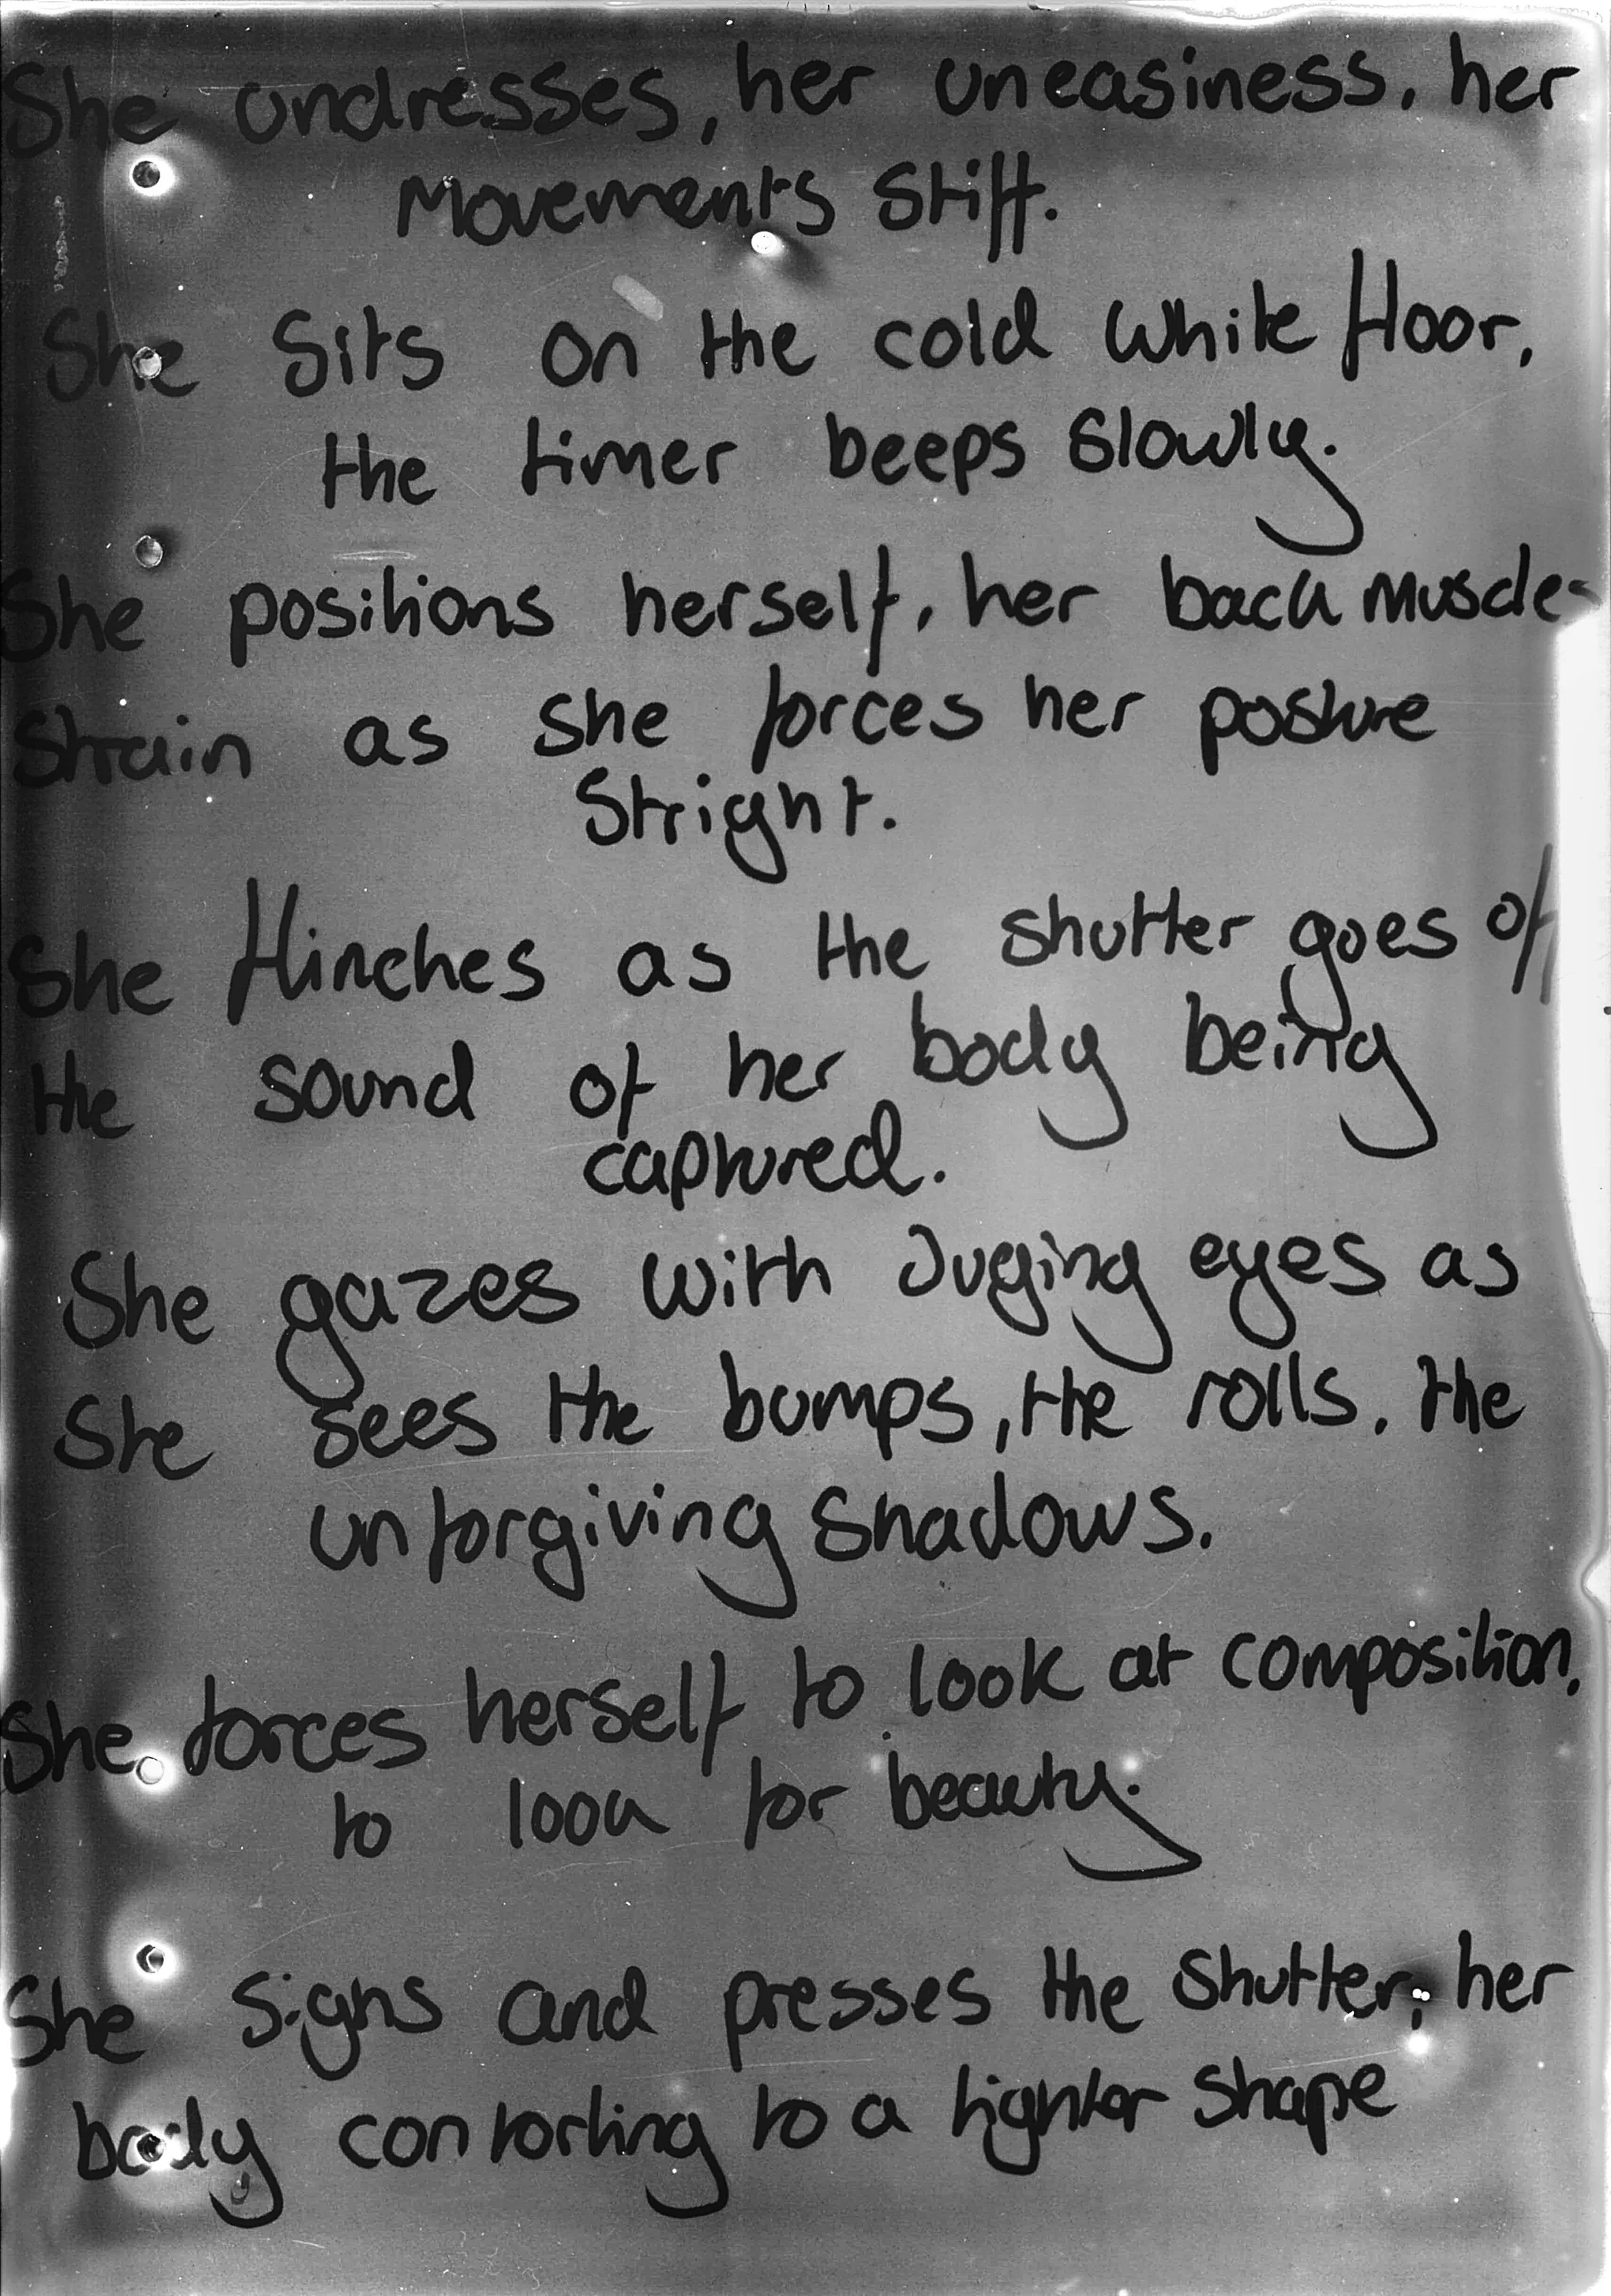 She undresses, her uneasiness, her
Movements Stiff.
She Sits on the cold white floor,
the timer beeps slowly.
She positions herself, her back muscles
Strain as she forces her posture
Stright.
She flinches as the shutter goes off
the sound of her body being
captured.
She gazes with Juging eyes as
She sees the bumps, the rolls, the
unforgiving Shadows.
She forces herself to look at composition,
to look for beauty.
She Sighs and presses the shutter, her
body contorting to a tighter shape